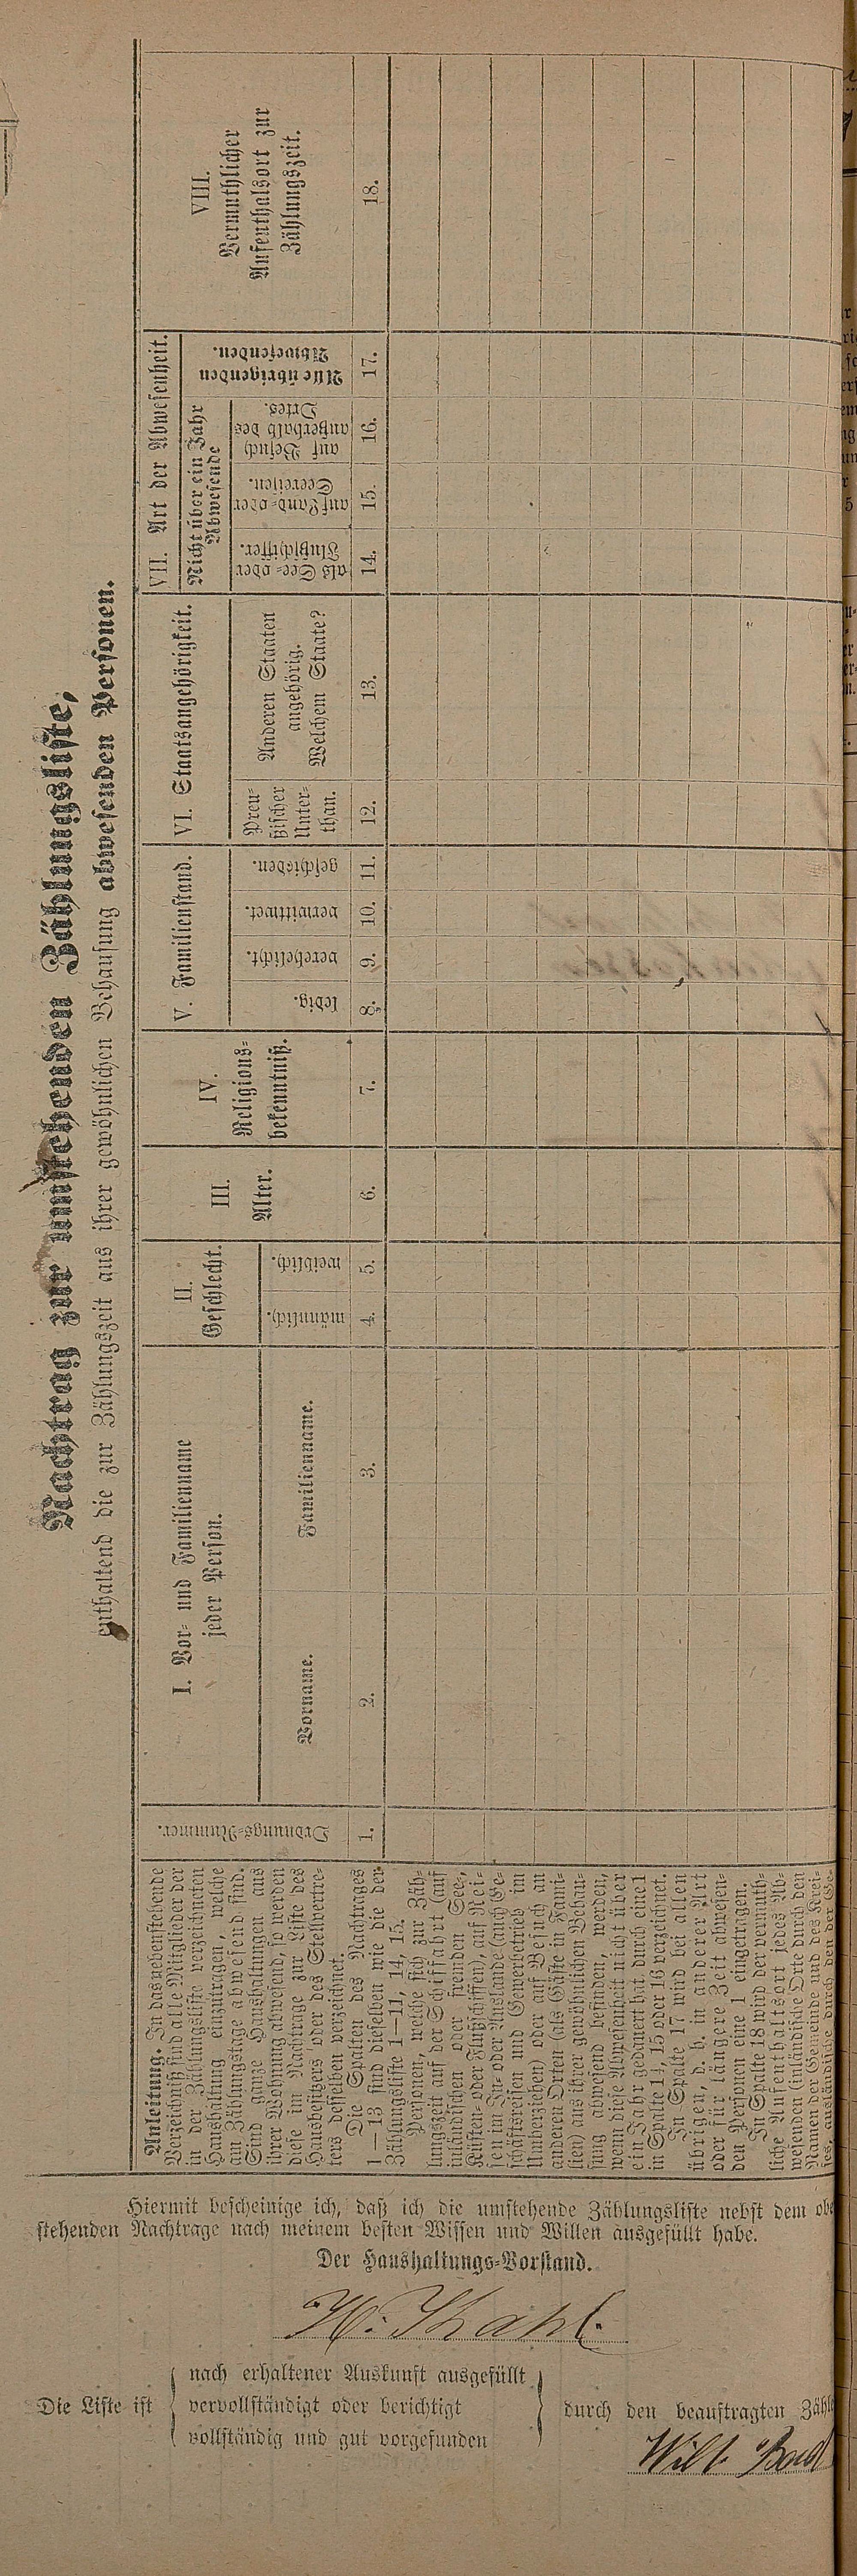 Nachtrag zur umstehenden Zählungsliste,
enthaltend die zur Zählungszeit aus ihrer gewöhnlichen Behausung abwesenden Personen.
Anleitung. In das nebenstehende
Verzeichniß sind alle Mitglieder der
in der Zählungsliste verzeichneten
Haushaltung einzutragen, welche
am Zählungstage abwesend sind.
Sind ganze Haushaltungen aus
ihrer Wohnung abwesend, so werden
diese im Nachtrage zur Liste des
Hausbesitzers oder des Stellvertre-
ters desselben verzeichnet.
Die Spalten des Nachtrages
1—13 sind dieselben wie die der
Zählungsliste 1—11, 14, 15.
Personen, welche sich zur Zäh-
lungszeit auf der Schifffahrt (auf
inländischen oder fremden See-,
Küsten- oder Flußschiffen), auf Rei-
sen im In- oder Auslande (auch Ge-
schäftsreisen und Gewerbetrieb im
Umherziehen) oder auf Besuch an
anderen Orten (als Gäste in Fami-
lien) aus ihrer gewöhnlichen Behau-
sung abwesend befinden, werden,
wenn diese Abwesenheit nicht über
ein Jahr gedauert hat, durch eine 1
in Spalte 14, 15 oder 16 verzeichnet.
In Spalte 17 wird bei allen
übrigen, d. h. in anderer Art
oder für längere Zeit abwesen-
den Personen eine 1 eingetragen.
In Spalte 18 wird der vermuth-
liche Aufenthaltsort jedes Ab-
wesenden (inländische Orte durch den
Namen der Gemeinde und des Krei-
ses, ausländische durch den der Ge-
Ordnungs-Nummer.
1.
I. Vor- und Familienname
jeder Person.
Vorname.
2.
Familienname.
3.
II.
Geschlecht.
männlich.
4.
weiblich.
5.
III.
Alter.
6.
IV.
Religions-
bekenntniß.
7.
V. Familienstand.
ledig.
8.
verehelicht.
9.
verwittwet.
10.
geschieden.
11.
VI. Staatsangehörigkeit.
Preu-
ßischer
Unter-
than.
12.
Anderen Staaten
angehörig.
Welchem Staate?
13.
VII. Art der Abwesenheit.
Nicht über ein Jahr
Abwesende
als See- oder
Flußschiffer.
14.
auf Land- oder
Seereisen.
15.
auf Besuch
außerhalb des
Ortes.
16.
Alle übrigen
Abwesenden.
17.
VIII.
Vermuthlicher
Aufenthalsort zur
Zählungszeit.
18.
Hiermit bescheinige ich, daß ich die umstehende Zählungsliste nebst dem obe
stehenden Nachtrage nach meinem besten Wissen und Willen ausgefüllt habe.
Der Haushaltungs-Vorstand.
H. Kahl
nach erhaltener Auskunft ausgefüllt
Die Liste ist vervollständigt oder berichtigt durch den beauftragten Zähle
vollständig und gut vorgefunden
Wilh.